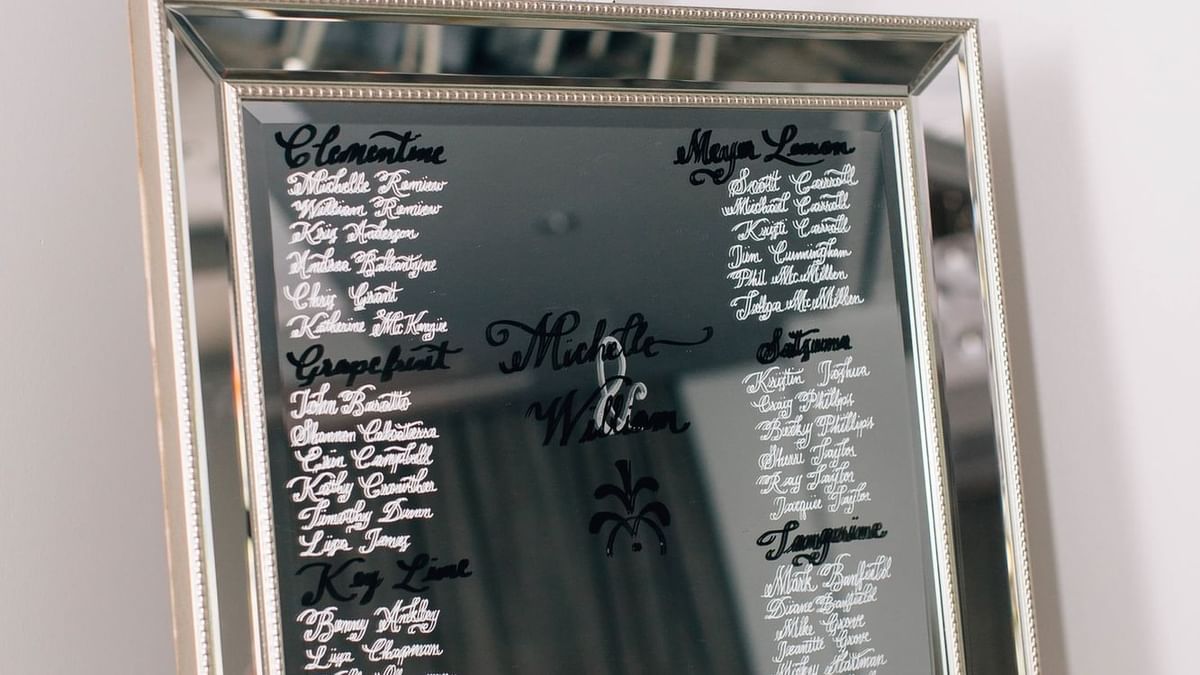 Clementine
Michelle Remiew
William Remiew
Kris Anderson
Andrea Ballantyne
Chris Grant
Katherine McKenzie
Grapefruit
John Baratto
Shannon
Erin Campbell
Kathy Crowther
Timothy Dunn
Lisa Jones
Key Lime
Benny Ankley
Lisa Chapman
Michelle
&
William
Meyer Lemon
Scott Carroll
Michael Carroll
Kristi Carroll
Jim Cunningham
Phil McMillen
Tolga McMillen
Satsuma
Kristin Joshua
Craig Phillips
Becky Phillips
Sherri Taylor
Ray Taylor
Jacquie Taylor
Tangerine
Mark Banfield
Diane Banfield
Mike Grove
Jeanette Grove
Mickey Hartman